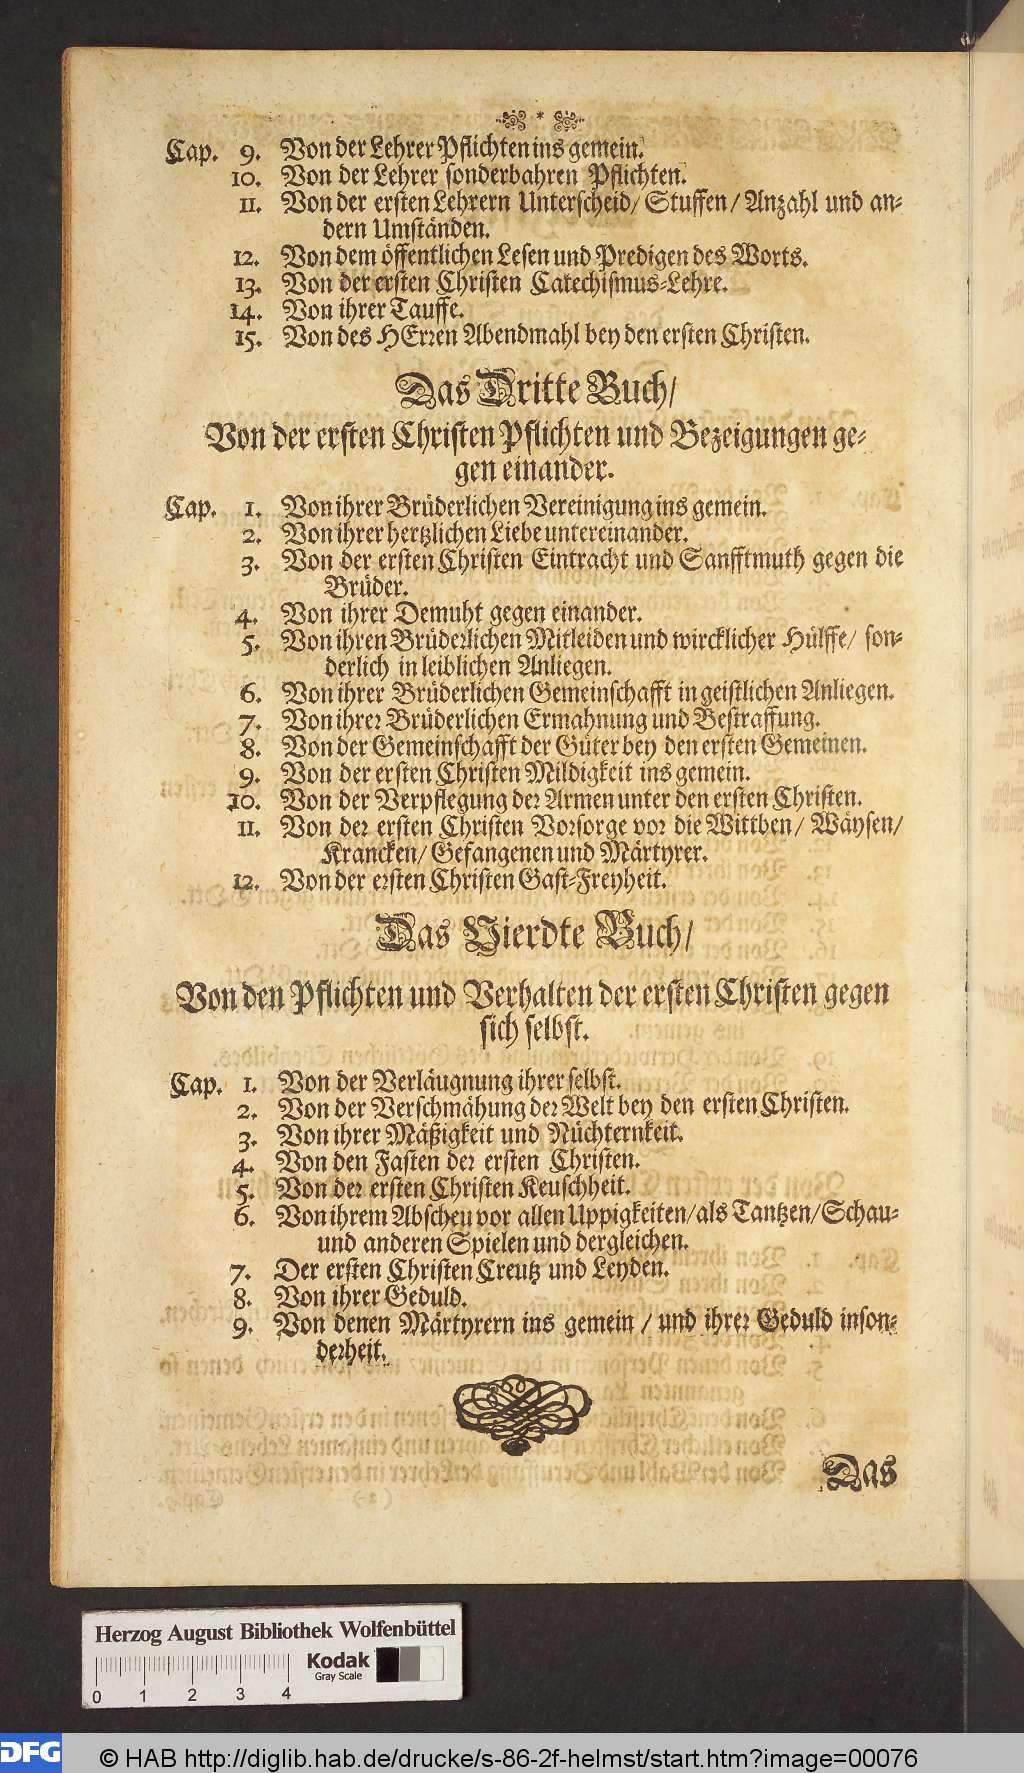 Cap. 9. Von der Lehrer Pflichten ins gemein.
10. Von der Lehrer sonderbahren Pflichten.
11. Von der ersten Lehrern Unterscheid/ Stuffen/ Anzahl und an-
dern Umständen.
12. Von dem öffentlichen Lesen und Predigen des Worts.
13. Von der ersten Christen Catechismus-Lehre.
14. Von ihrer Tauffe.
15. Von des HErren Abendmahl bey den ersten Christen.
Das Dritte Buch/
Von der ersten Christen Pflichten und Bezeigungen ge-
gen einander.
Cap. 1. Von ihrer Brüderlichen Vereinigung ins gemein.
2. Von ihrer hertzlichen Liebe untereinander.
3. Von der ersten Christen Eintracht und Sanfftmuth gegen die
Brüder.
4. Von ihrer Demuht gegen einander.
5. Von ihren Brüderlichen Mitleiden und wircklicher Hülffe/ son-
derlich in leiblichen Anliegen.
6. Von ihrer Brüderlichen Gemeinschafft in geistlichen Anliegen.
7. Von ihrer Brüderlichen Ermahnung und Bestraffung.
8. Von der Gemeinschafft der Güter bey den ersten Gemeinen.
9. Von der ersten Christen Mildigkeit ins gemein.
10. Von der Verpflegung der Armen unter den ersten Christen.
11. Von der ersten Christen Vorsorge vor die Wittben/ Wäysen/
Krancken/ Gefangenen und Märtyrer.
12. Von der ersten Christen Gast-Freyheit.
Das Vierdte Buch/
Von den Pflichten und Verhalten der ersten Christen gegen
sich selbst.
Cap. 1. Von der Verläugnung ihrer selbst.
2. Von der Verschmähung der Welt bey den ersten Christen.
3. Von ihrer Mäßigkeit und Nüchternkeit.
4. Von den Fasten der ersten Christen.
5. Von der ersten Christen Keuschheit.
6. Von ihrem Abscheu vor allen Uppigkeiten/ als Tantzen/ Schau-
und anderen Spielen und dergleichen.
7. Der ersten Christen Creutz und Leyden.
8. Von ihrer Geduld.
9. Von denen Märtyrern ins gemein / und ihrer Geduld inson-
derheit.
Das
Herzog August Bibliothek Wolfenbüttel
Kodak
Gray Scale
0 1 2 3 4
DFG © HAB http://diglib.hab.de/drucke/s-86-2f-helmst/start.htm?image=00076